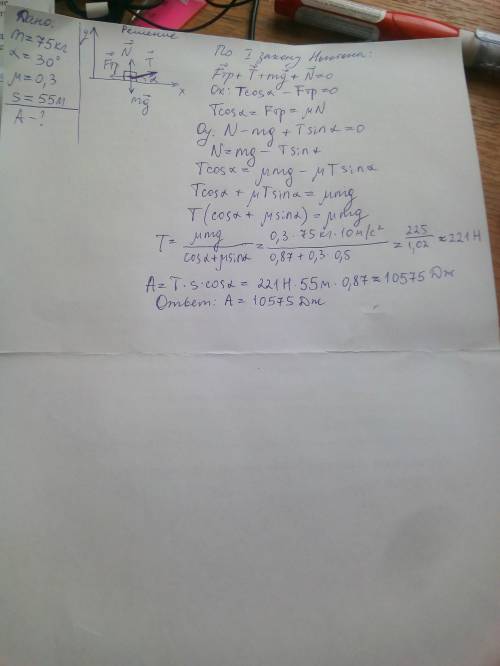 Дано:
m = 75кг
α = 30°
μ = 0,3
S = 55м
A - ?
Решение
y
N
T
Fтр
α
x
mg
По I закону Ньютона:
Fтр + T + mg + N = 0
Ox: Tcosα - Fтр = 0
Tcosα = Fтр = μN
Oy: N - mg + Tsinα = 0
N = mg - Tsinα
Tcosα = μmg - μTsinα
Tcosα + μTsinα = μmg
T(cosα + μsinα) = μmg
T = μmg / (cosα + μsinα) = 0,3 · 75кг · 10м/с² / (0,87 + 0,3 · 0,5) = 225 / 1,02 ≈ 221Н
A = T · s · cosα = 221Н · 55м · 0,87 = 10575 Дж
Ответ: A = 10575 Дж